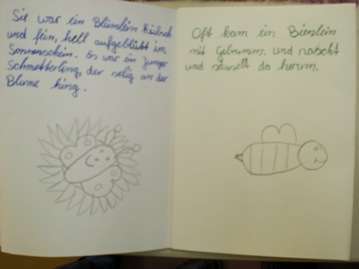 Sie war ein Blümlein hübsch
und fein, hell aufgeblüht im
Sonnenschein. Er war ein junger
Schmetterling, der selig an der
Blume hing.
Oft kam ein Bienlein
mit Gebrumm, und nascht
und säuselt da herum.